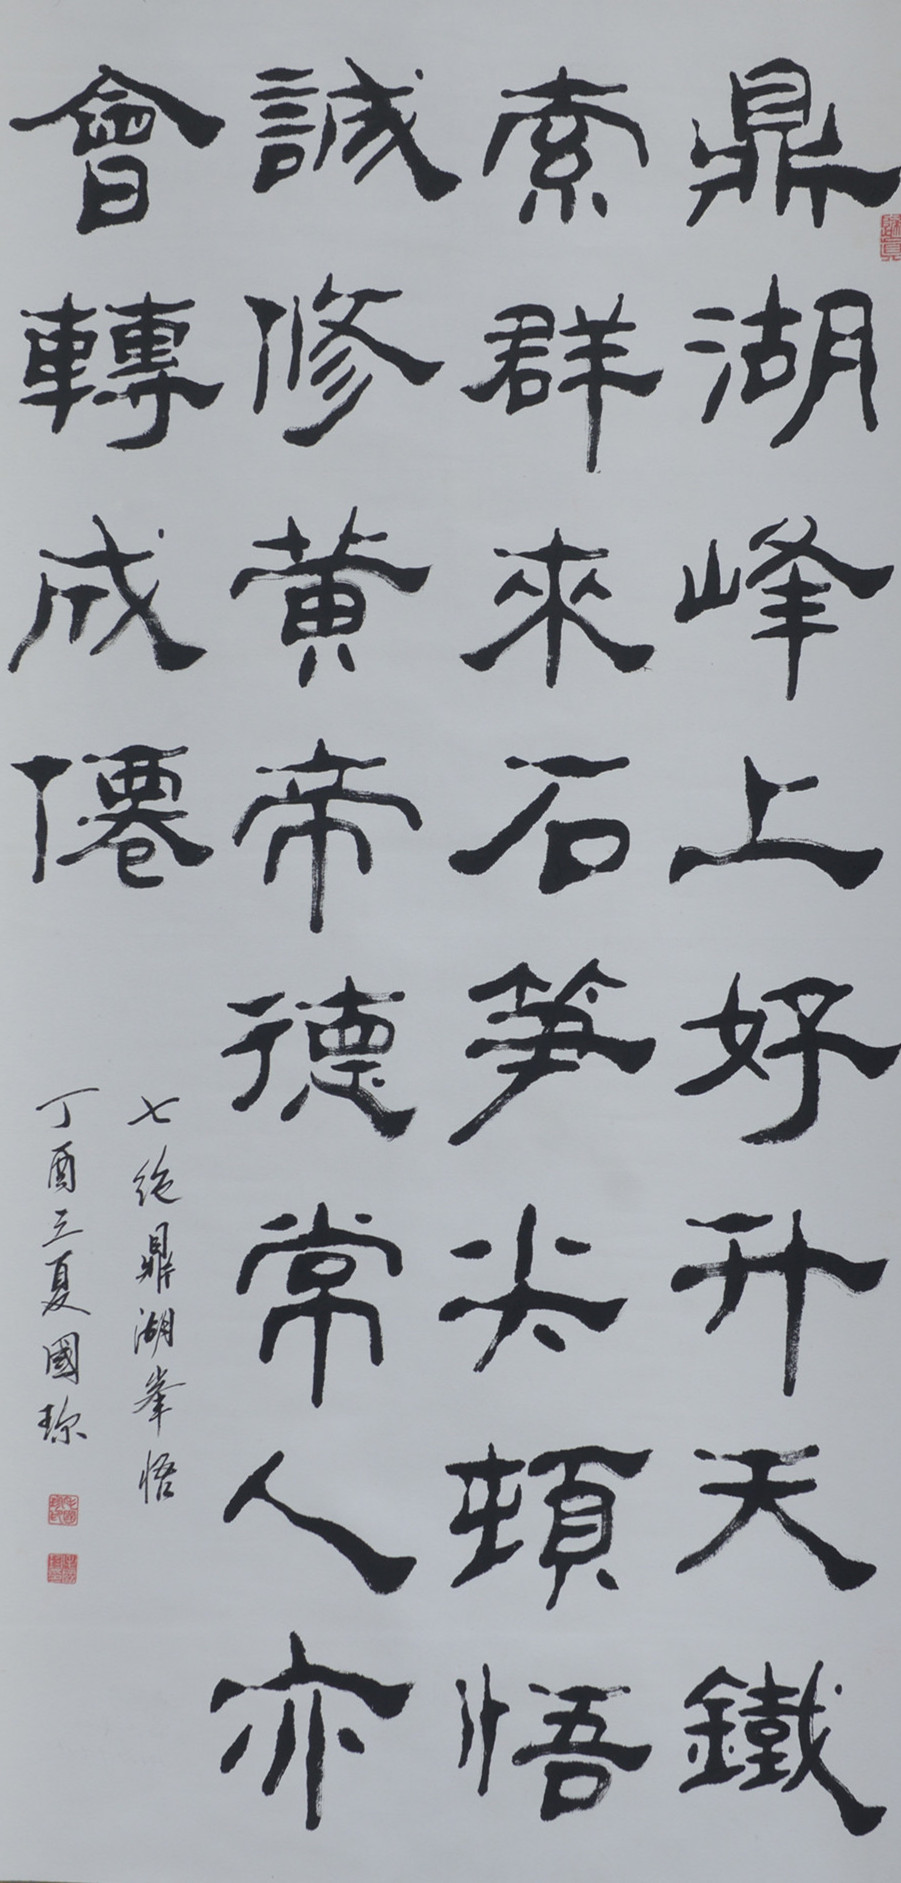 鼎湖峰上好升天鐵
索群來石笋尖頓悟
誠修黄帝德常人亦
會轉成僊
七絶鼎湖峯悟
丁酉立夏國珍